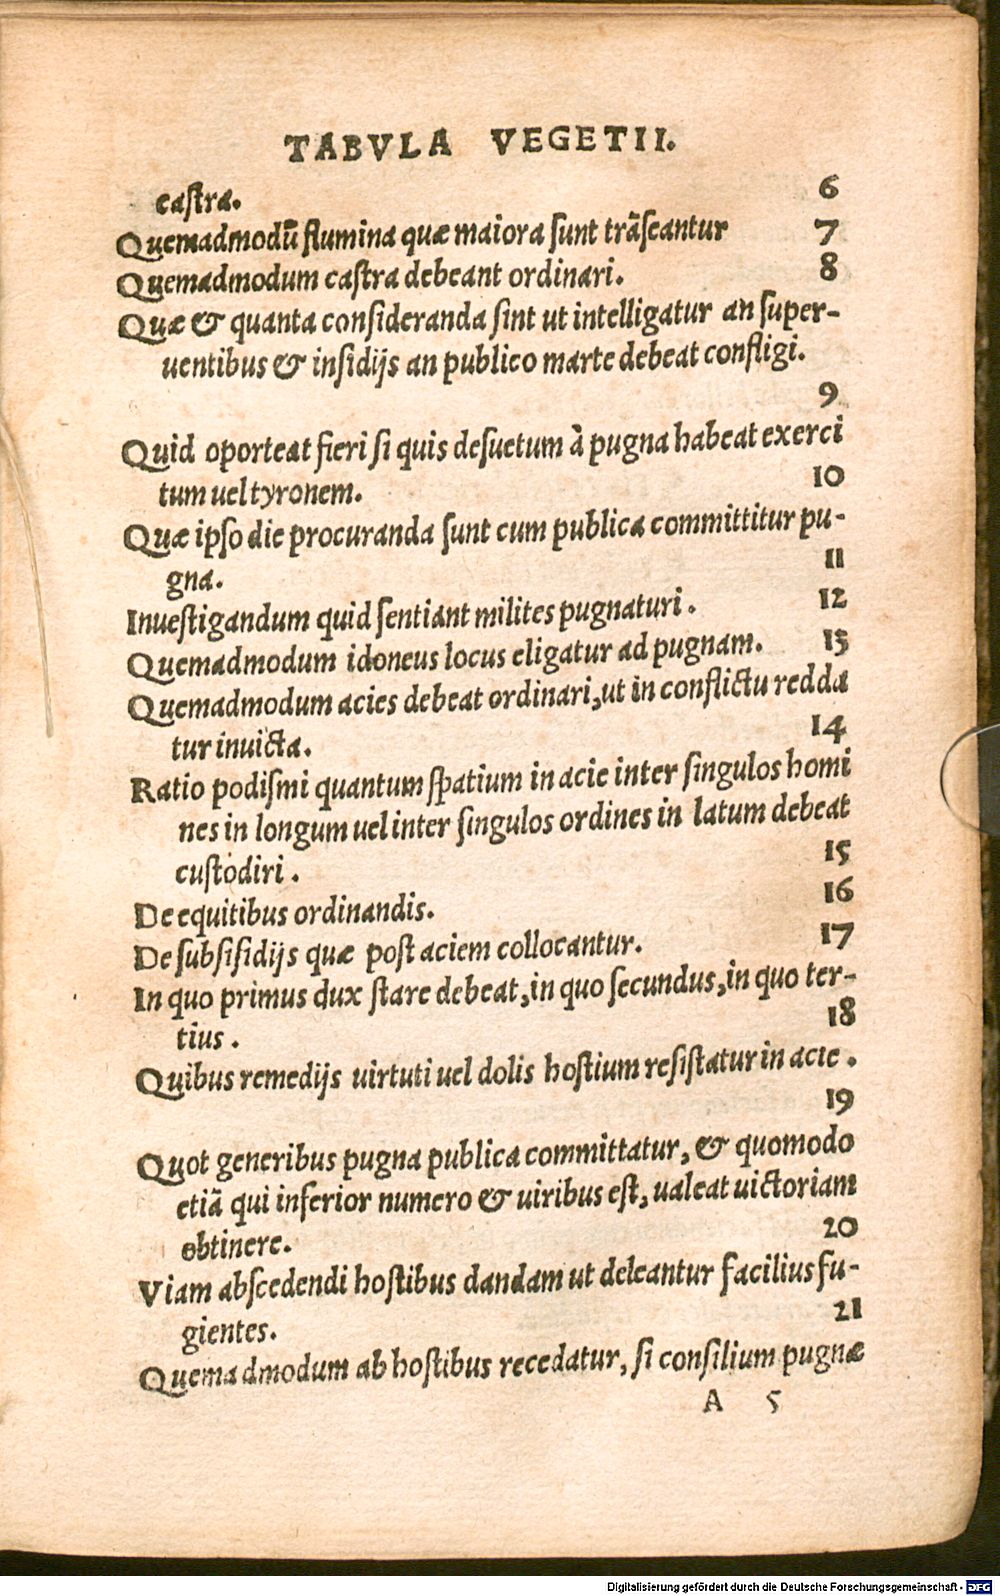 TABVLA VEGETII.
castra. 6
Quemadmodũ flumina quæ maiora sunt trãseantur 7
Quemadmodum castra debeant ordinari. 8
Quæ & quanta consideranda sint ut intelligatur an super-
uentibus & insidijs an publico marte debeat confligi.
9
Quid oporteat fieri si quis desuetum à pugna habeat exerci
tum uel tyronem. 10
Quæ ipso die procuranda sunt cum publica committitur pu-
gna. 11
Inuestigandum quid sentiant milites pugnaturi. 12
Quemadmodum idoneus locus eligatur ad pugnam. 13
Quemadmodum acies debeat ordinari, ut in conflictu redda
tur inuicta. 14
Ratio podismi quantum spatium in acie inter singulos homi
nes in longum uel inter singulos ordines in latum debeat
custodiri. 15
De equitibus ordinandis. 16
De subsisidijs quæ post aciem collocantur. 17
In quo primus dux stare debeat, in quo secundus, in quo ter-
tius. 18
Quibus remedijs uirtuti uel dolis hostium resistatur in acie.
19
Quot generibus pugna publica committatur, & quomodo
etiã qui inferior numero & uiribus est, ualeat uictoriam
obtinere. 20
Viam abscedendi hostibus dandam ut deleantur facilius fu-
gientes. 21
Quemadmodum ab hostibus recedatur, si consilium pugnæ
A 5
Digitalisierung gefördert durch die Deutsche Forschungsgemeinschaft - DFG